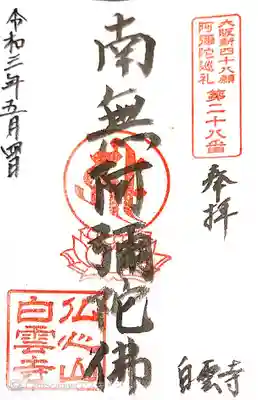 大阪新四十八願
阿彌陀巡礼
第二十八番
奉拝
白雲寺
南無阿彌陀佛
仏心山
白雲寺
令和三年五月四日